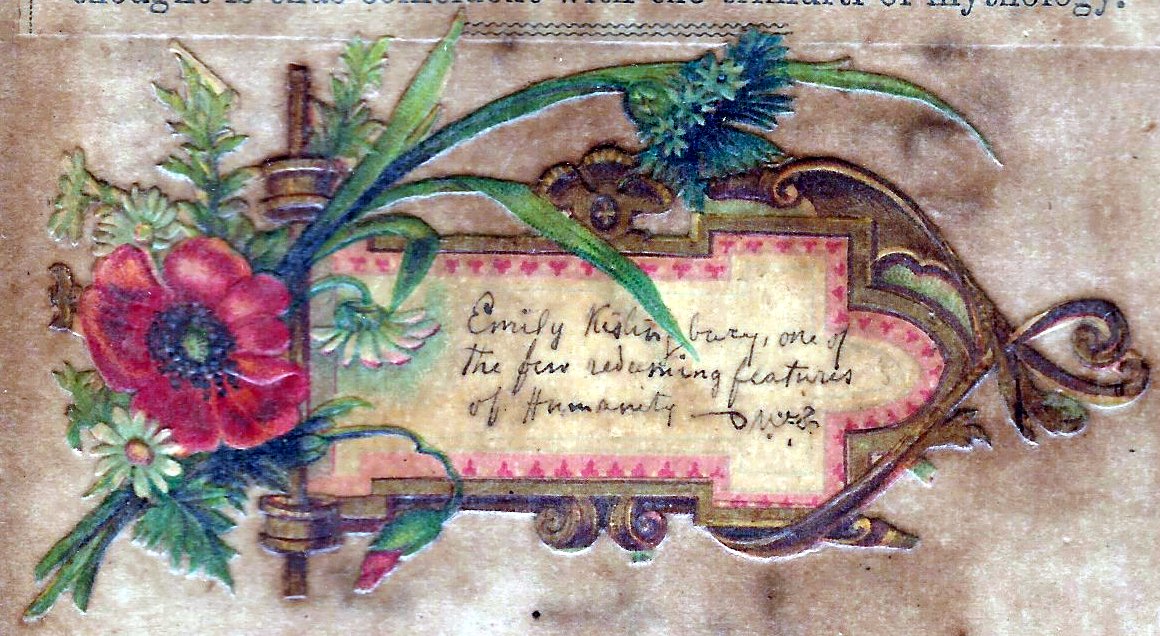 thought is thus coincident with the trimurti of mythology.
Emily Kislingbury, one of
the few redeeming features
of Humanity —